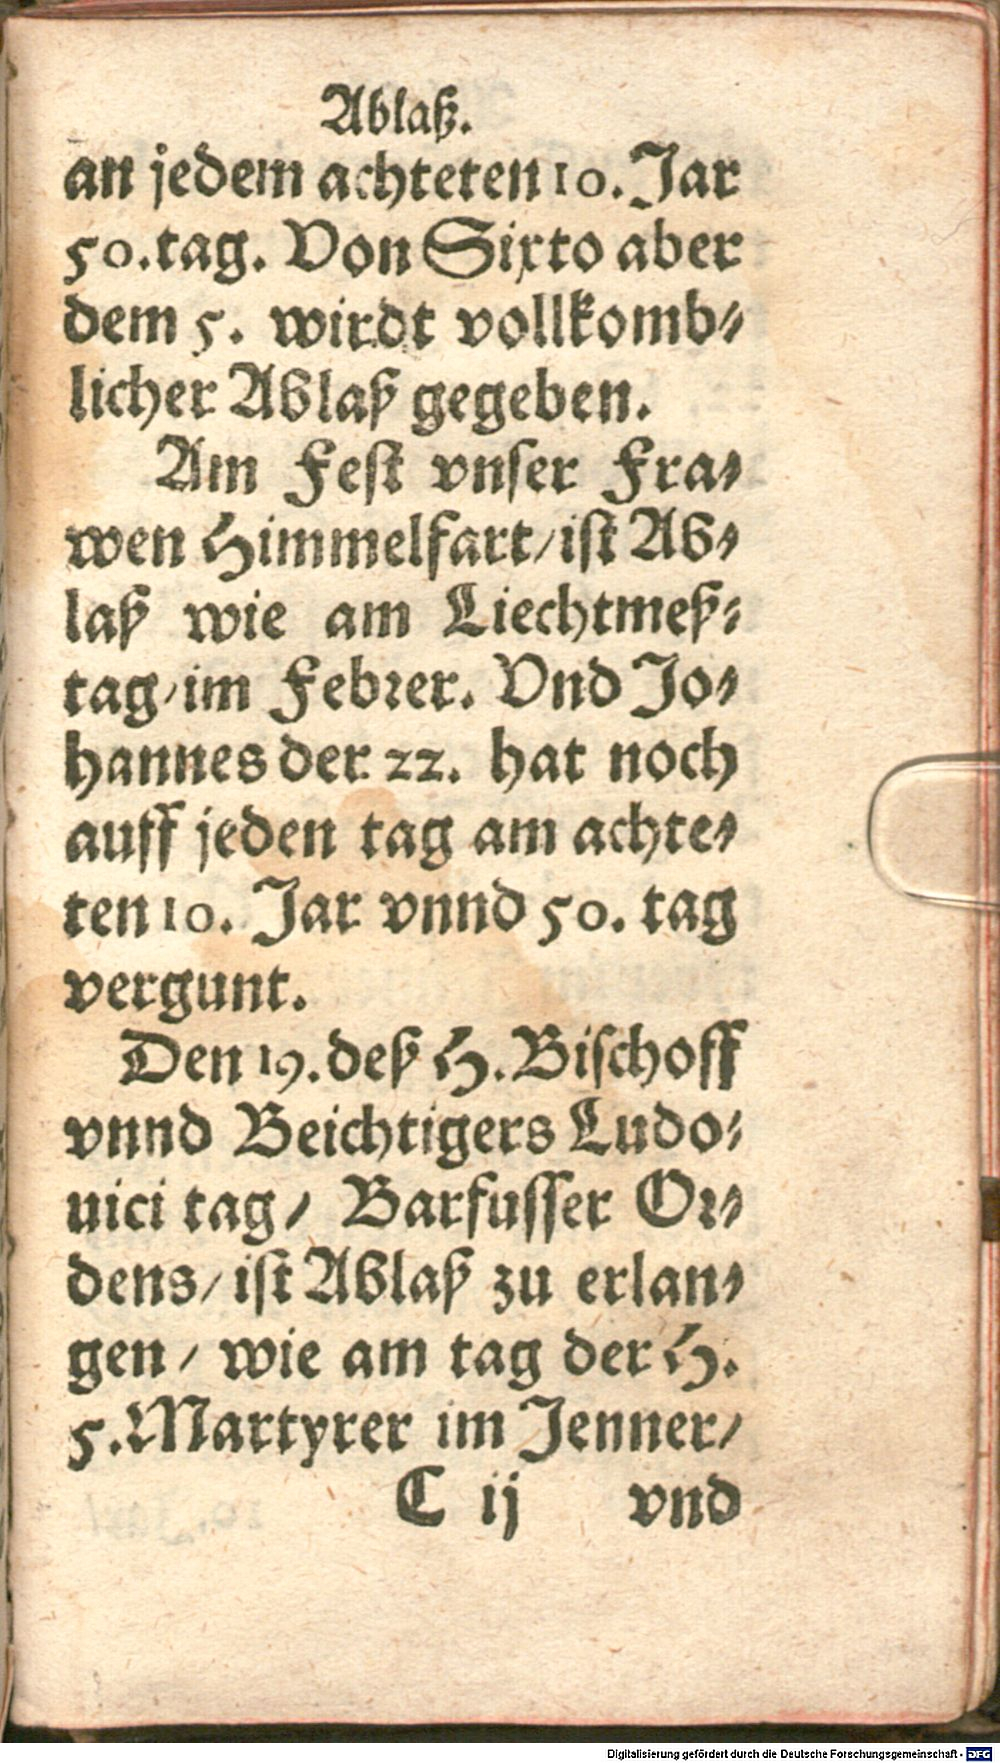 Ablaß.
an jedem achteten 10. Jar
50. tag. Von Sixto aber
dem 5. wirdt vollkomb⸗
licher Ablaß gegeben.
Am Fest vnser Fra⸗
wen Himmelfart / ist Ab⸗
laß wie am Liechtmeß⸗
tag / im Febrer. Vnd Jo⸗
hannes der 22. hat noch
auff jeden tag am achte⸗
ten 10. Jar vnnd 50. tag
vergunt.
Den 19. deß H. Bischoff
vnnd Beichtigers Ludo⸗
uici tag / Barfusser Or⸗
dens / ist Ablaß zu erlan⸗
gen / wie am tag der H.
5. Martyrer im Jenner /
C ij vnd
Digitalisierung gefördert durch die Deutsche Forschungsgemeinschaft - DFG